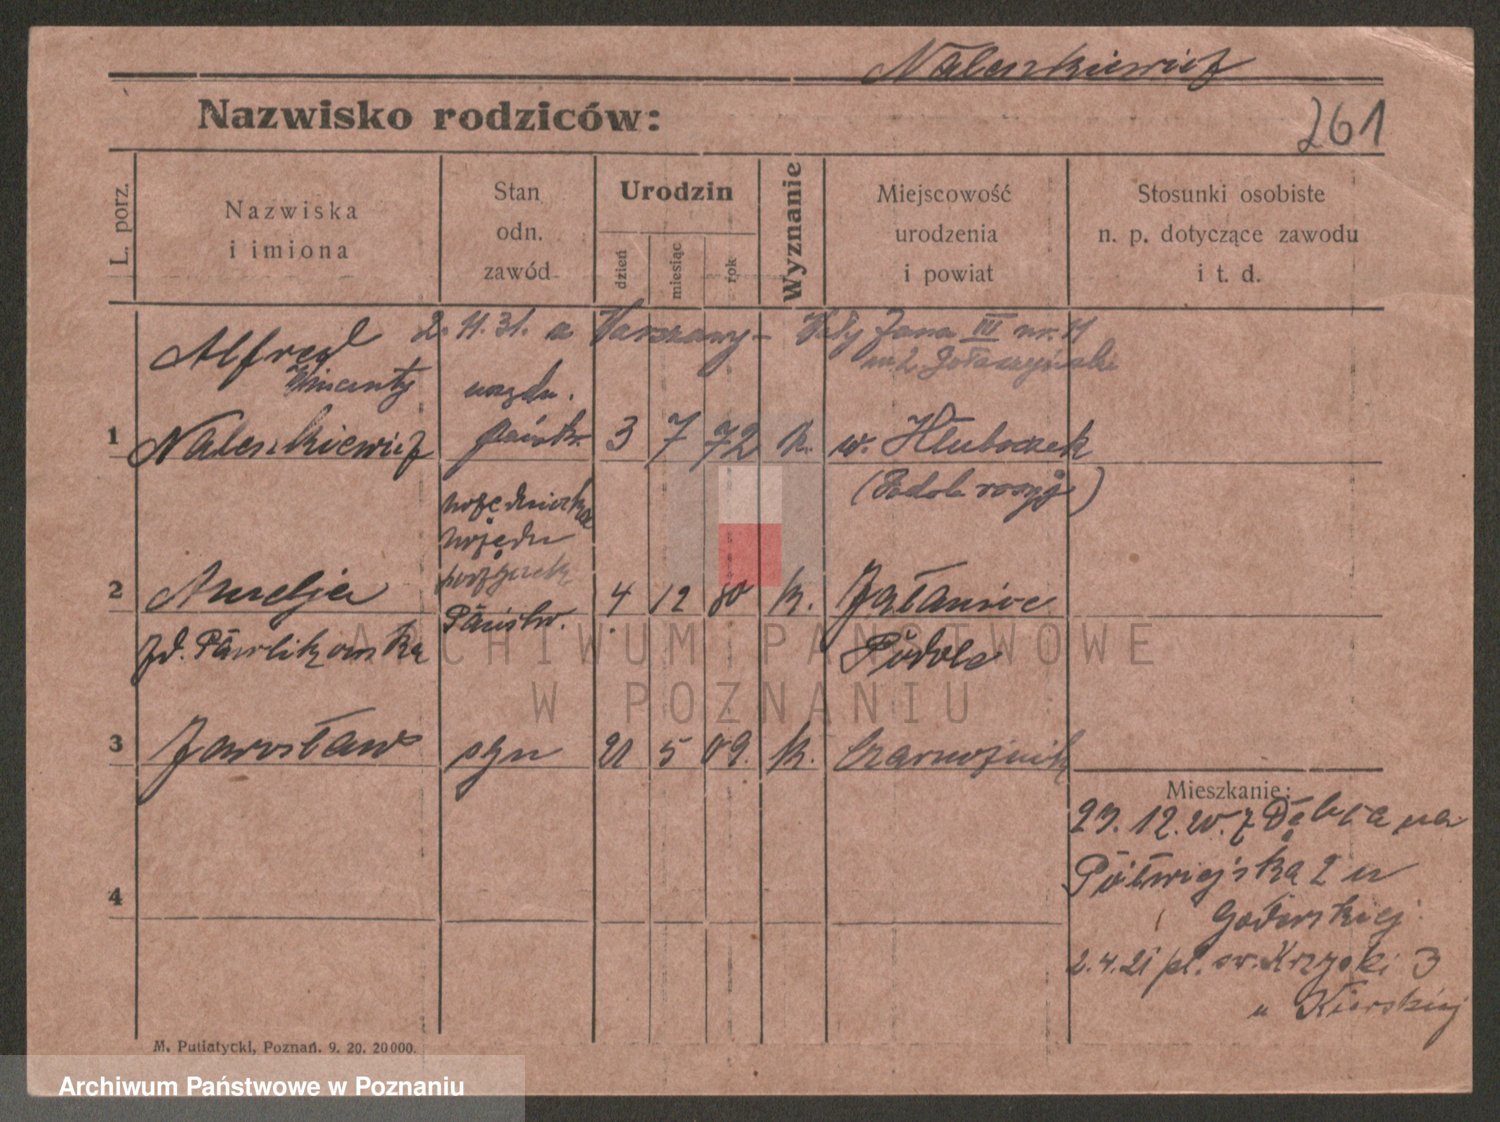 Naleszkiewicz
Nazwisko rodziców:
261
L. porz.
Nazwiska
i imiona
Stan
odn.
zawód
Urodzin
dzień
miesiąc
rok
Wyznanie
Miejscowość
urodzenia
i powiat
Stosunki osobiste
n. p. dotyczące zawodu
i t. d.
2. 11. 31. a Warszawy - Jana III nr. 11
Alfred
Wincenty
1 Naleszkiewicz urzędn. państw. 3 7 72 k. w. Hłuboczek
(Podole rosyj)
2 Amelja urzędniczka urzędu Państw. 4 12 80 k.
zd. Pawlikowska Podole
3 Jarosław syn 21 5 09. k.
Mieszkanie:
29. 12. 20. z
Półwiejska 2 u
4
2.4.21 pl. św. Krzyski 3
u Kierskiej
M. Putiatycki, Poznań. 9. 20. 20000.
ARCHIWUM PAŃSTWOWE
W POZNANIU
Archiwum Państwowe w Poznaniu